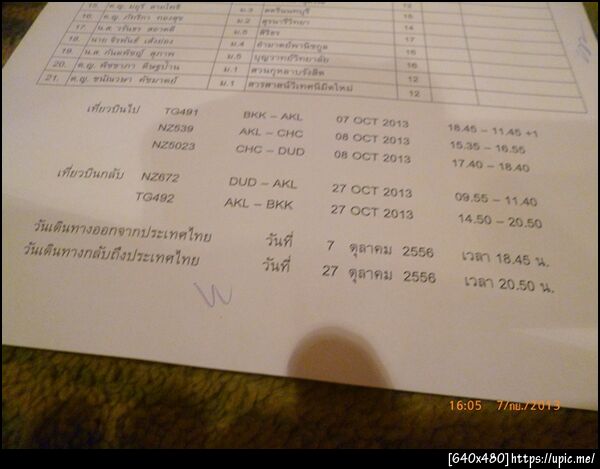 15. ด.ญ. ม.3 12
16. ด.ญ. ภัทริกา ทองสุข ม.2 สุรนารีวิทยา 15
17. น.ส. วรันยา ม.5 สิริธร 14
18. นาย ม.4 17
19. น.ส. สุภาพ ม.5 บุญวาทย์วิทยาลัย 15
20. ด.ญ. พิชชาภา ม.1 สวนกุหลาบรังสิต 16
21. ด.ญ. ชนันวพา ม.1 สารสาสน์วิเทศนิมิตใหม่ 12
12
เที่ยวบินไป TG491 BKK – AKL 07 OCT 2013 18.45 – 11.45 +1
NZ539 AKL – CHC 08 OCT 2013 15.35 – 16.55
NZ5023 CHC – DUD 08 OCT 2013 17.40 – 18.40
เที่ยวบินกลับ NZ672 DUD – AKL 27 OCT 2013 09.55 – 11.40
TG492 AKL – BKK 27 OCT 2013 14.50 – 20.50
วันเดินทางออกจากประเทศไทย วันที่ 7 ตุลาคม 2556 เวลา 18.45 น.
วันเดินทางกลับถึงประเทศไทย วันที่ 27 ตุลาคม 2556 เวลา 20.50 น.
16:05 7/กย./2013
[640x480]https://upic.me/